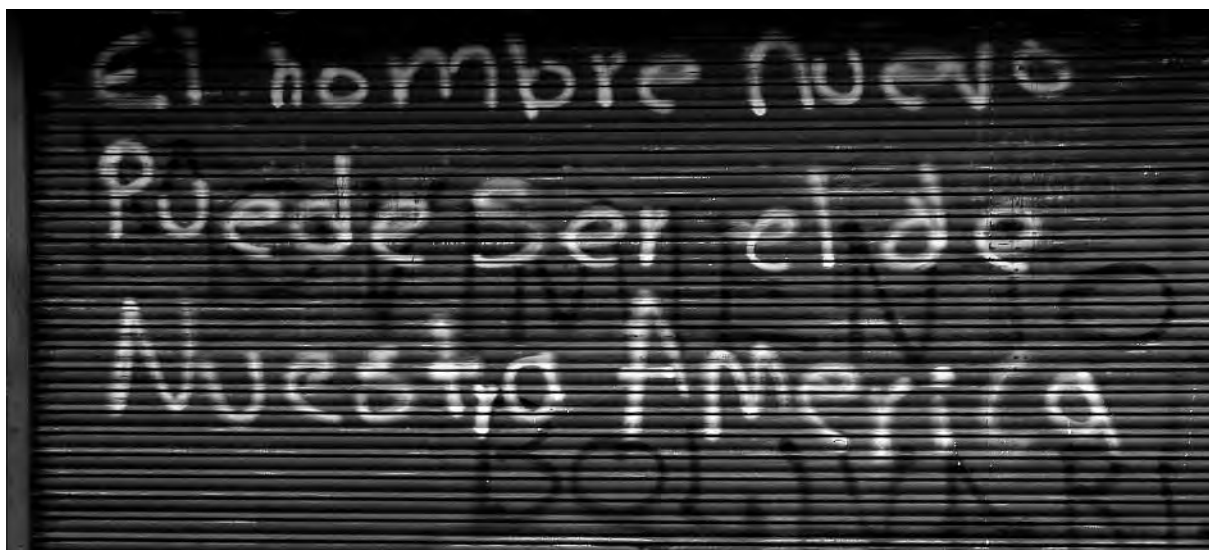 El hombre Nuevo
Puede Ser el de
Nuestra America